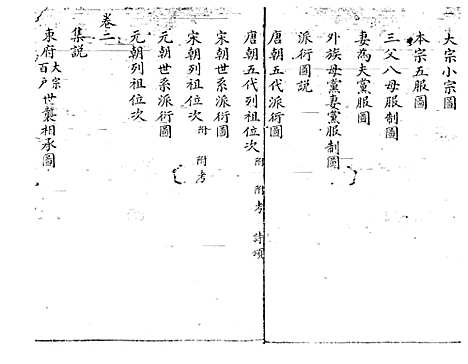 大宗小宗圖
本宗五服圖
三父八母服制圖
妻為夫黨服圖
外族母黨妻黨服制圖
派衍圖説
唐朝五代派衍圖
唐朝五代列祖位次 附 附考 詩頌
宋朝世系派衍圖
宋朝列祖位次 附 附考
元朝世系派衍圖
元朝列祖位次
卷二
集説
東府百户大宗世襲相承圖